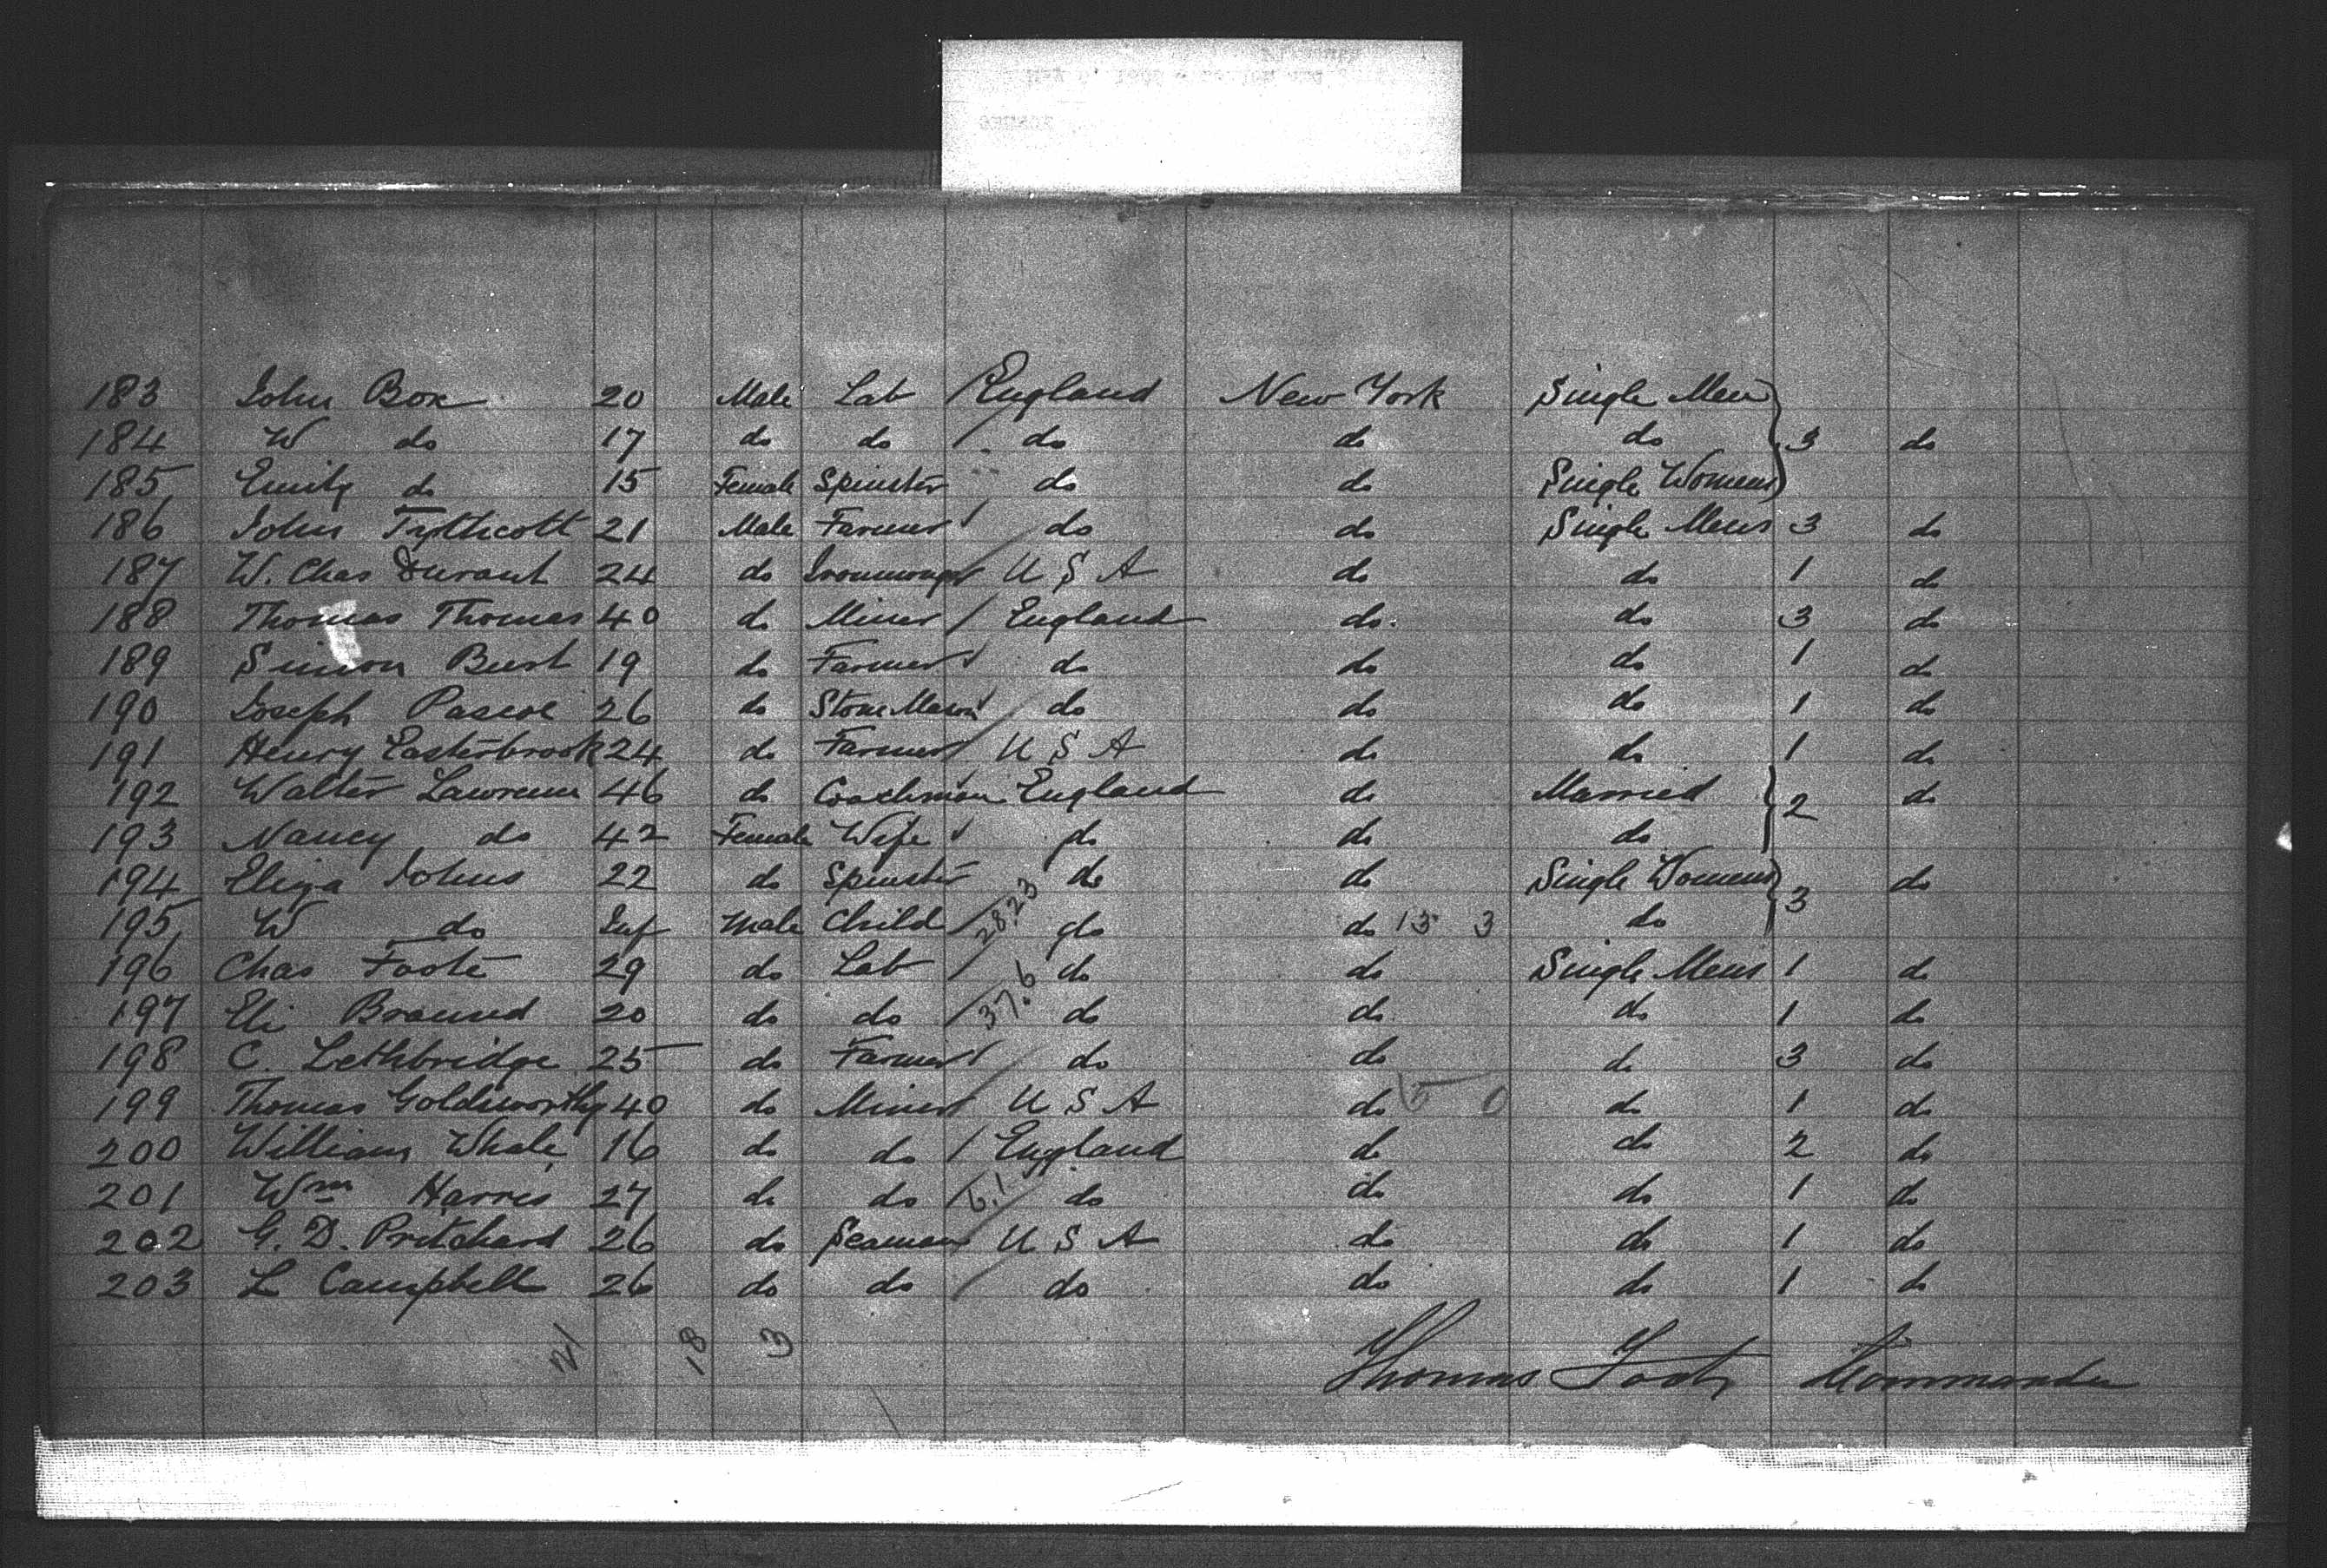 183 John Box 20 Male Lab England New York Single Men
184 W do 17 do do do do do 3 do
185 Emily do 15 Female Spinster do do Single Womens
186 John Tythcott 21 Male Farmer do do Single Mens 3 do
187 W. Chas Durant 24 do Ironmonger U S A do do 1 do
188 Thomas Thomas 40 do Miner England do do 3 do
189 Simon Burt 19 do Farmer do do do 1 do
190 Joseph Pascoe 26 do Stone Mason do do do 1 do
191 Henry Easterbrook 24 do Farmer U S A do do 1 do
192 Walter Lawrence 46 do Coachman England do Married 2 do
193 Nancy do 42 Female Wife do do do
194 Eliza Johns 22 do Spinster do do Single Womens 3 do
195 W do Inf Male Child 2823 do do 13 3 do
196 Chas Foote 29 do Lab do do Single Mens 1 do
197 Eli Braund 20 do do 37.6 do do do 1 do
198 C. Lethbridge 25 do Farmer do do do 3 do
199 Thomas Goldsworthy 40 do Miner U S A do 5 0 do 1 do
200 William Whale 16 do do England do do 2 do
201 Wm Harris 27 do do 6.1 do do do 1 do
202 G. D. Pritchard 26 do Seaman U S A do do 1 do
203 L Campbell 26 do do do do do 1 do
21 18 3
Thomas Commander